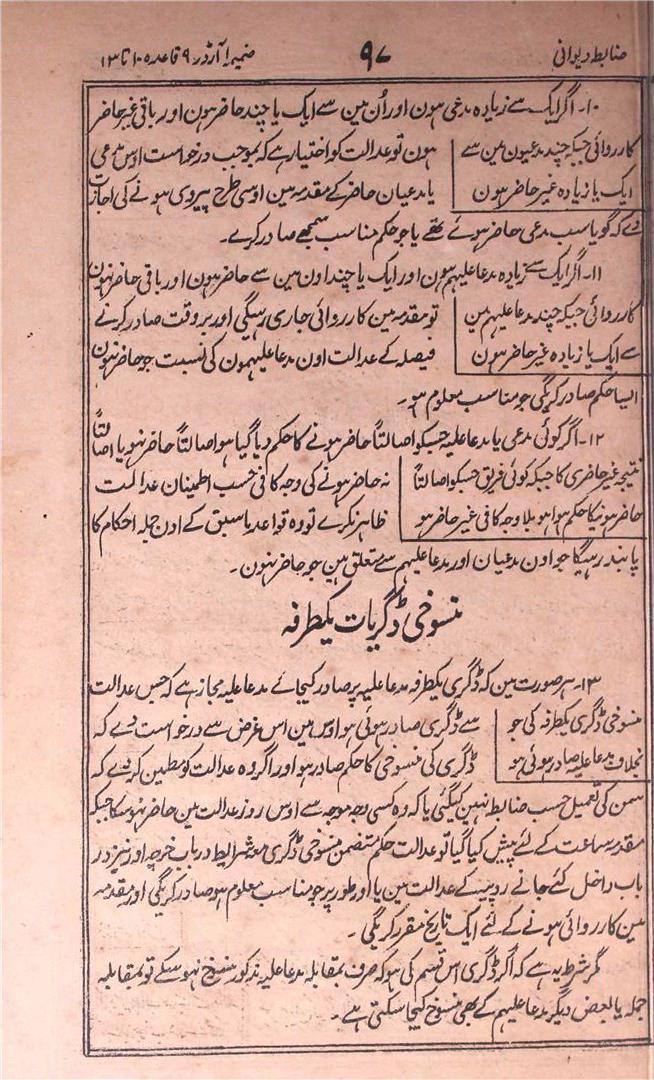 ضابطہ دیوانی
۹۷
ضمیمہ ۱ آرڈر ۹ قاعدہ ۱۰ تا ۱۳
۱۰۔ اگر ایک سے زیادہ مدعی ہون اور اُن مین سے ایک یا چند حاضر ہون اور باقی غیر حاضر
کارروائی جبکہ چند مدعیون مین سے
ایک یا زیادہ غیر حاضر ہون
ہون تو عدالت کو اختیار ہے کہ بموجب درخواست اوس مدعی
یا مدعیان حاضر کے مقدمہ مین اوسی طرح پیروی ہونے کی اجازت
دے کہ گویا سب مدعی حاضر ہوئے تھے یا جو حکم مناسب سمجھے صادر کرے۔
۱۱۔ اگر ایک سے زیادہ مدعا علیہم ہون اور ایک یا چند اون مین سے حاضر ہون اور باقی حاضر نہون
کارروائی جبکہ چند مدعا علیہم مین
سے ایک یا زیادہ غیر حاضر ہون
تو مقدمہ مین کارروائی جاری رہیگی اور بر وقت صادر کرنے
فیصلہ کے عدالت اون مدعا علیہمون کی نسبت جو حاضر نہون
ایسا حکم صادر کریگی جو مناسب معلوم ہو۔
۱۲۔ اگر کوئی مدعی یا مدعا علیہ جسکو اصالتاً حاضر ہونے کا حکم دیا گیا ہو اصالتاً حاضر نہو یا اصالتاً
نتیجہ غیر حاضری کا جبکہ کوئی فریق جسکو اصالتاً
حاضر ہونیکا حکم ہوا ہو بلا وجہ کافی غیر حاضر ہو
نہ حاضر ہونے کی وجہ کافی حسب اطمینان عدالت
ظاہر نکرے تو وہ قواعد ماسبق کے اون جملہ احکام کا
پابند رہیگا جو اون مدعیان اور مدعا علیہم سے متعلق ہین جو حاضر نہون۔
منسوخی ڈگریات یکطرفہ
۱۳۔ ہر صورت مین کہ ڈگری یکطرفہ مدعا علیہ پر صادر کیجائے مدعا علیہ مجاز ہے کہ جس عدالت
منسوخی ڈگری یکطرفہ کی جو
بخلاف مدعا علیہ صادر ہوئی ہو
سے ڈگری صادر ہوئی ہو اوس مین اس غرض سے درخواست دے کہ
ڈگری کی منسوخی کا حکم صادر ہو اور اگر وہ عدالت کو مطمئن کردے کہ
سمن کی تعمیل حسب ضابطہ نہین کیگئی یا کہ وہ کسی وجہ موجہ سے اوس روز عدالت مین حاضر نہوسکا جبکہ
مقدمہ سماعت کے لئے پیش کیا گیا تو عدالت حکم متضمن منسوخی ڈگری معہ شرایط در باب خرچہ اور نیز در
باب داخل کئے جانے روپیہ کے عدالت مین یا اور طور پر جو مناسب معلوم ہو صادر کریگی اور مقدمہ
مین کارروائی ہونے کے لئے ایک تاریخ مقرر کریگی۔
مگر شرط یہ ہے کہ اگر ڈگری اس قسم کی ہو کہ صرف بمقابلہ مدعا علیہ مذکور منسوخ نہو سکے تو بمقابلہ
جملہ یا بعض دیگر مدعا علیہم کے بھی منسوخ کیجا سکتی ہے۔